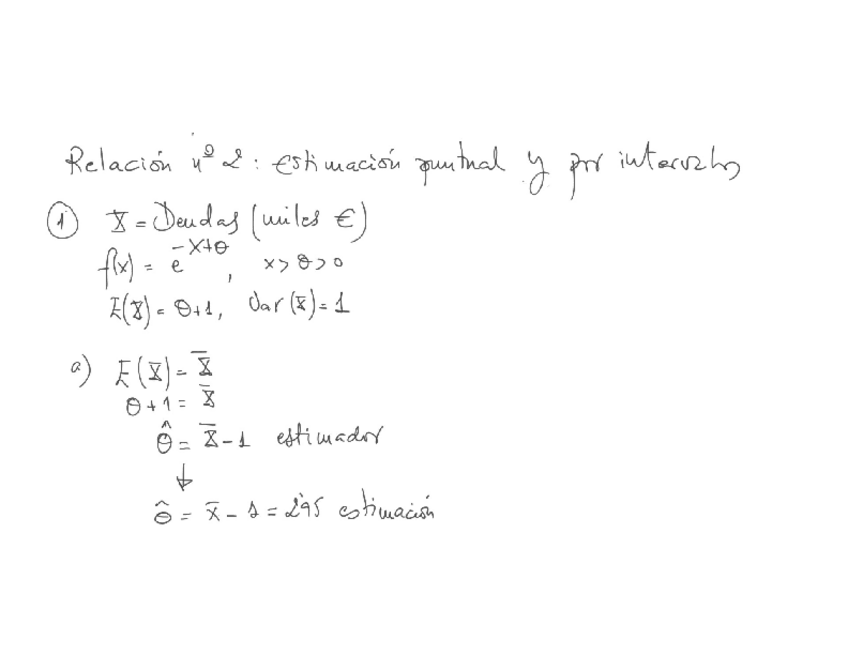 Relación nº 2: estimación puntual y por intervalos
① X = Deudas (miles €)
f(x) = e^{-x+θ}, x > θ > 0
E(X) = θ+1, Var(X) = 1
a) E(X) = X̄
θ + 1 = X̄
θ̂ = X̄ - 1 estimador
↓
θ̂ = x̄ - 1 = 2'95 estimación